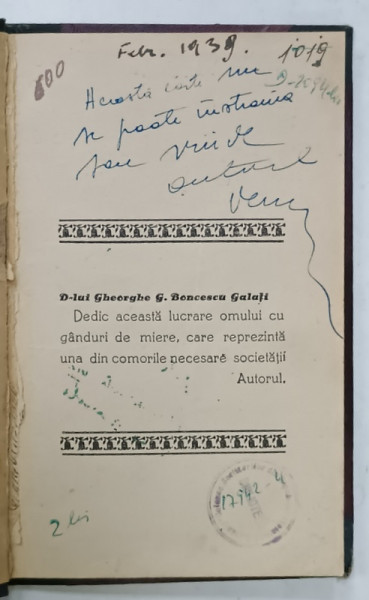 600
Febr. 1939.
1019
Această carte nu
se poate înstrăina
sau vinde
autorul
D-lui Gheorghe G. Boncescu Galați
Dedic această lucrare omului cu
gânduri de miere, care reprezintă
una din comorile necesare societății
Autorul.
17942
2 lei